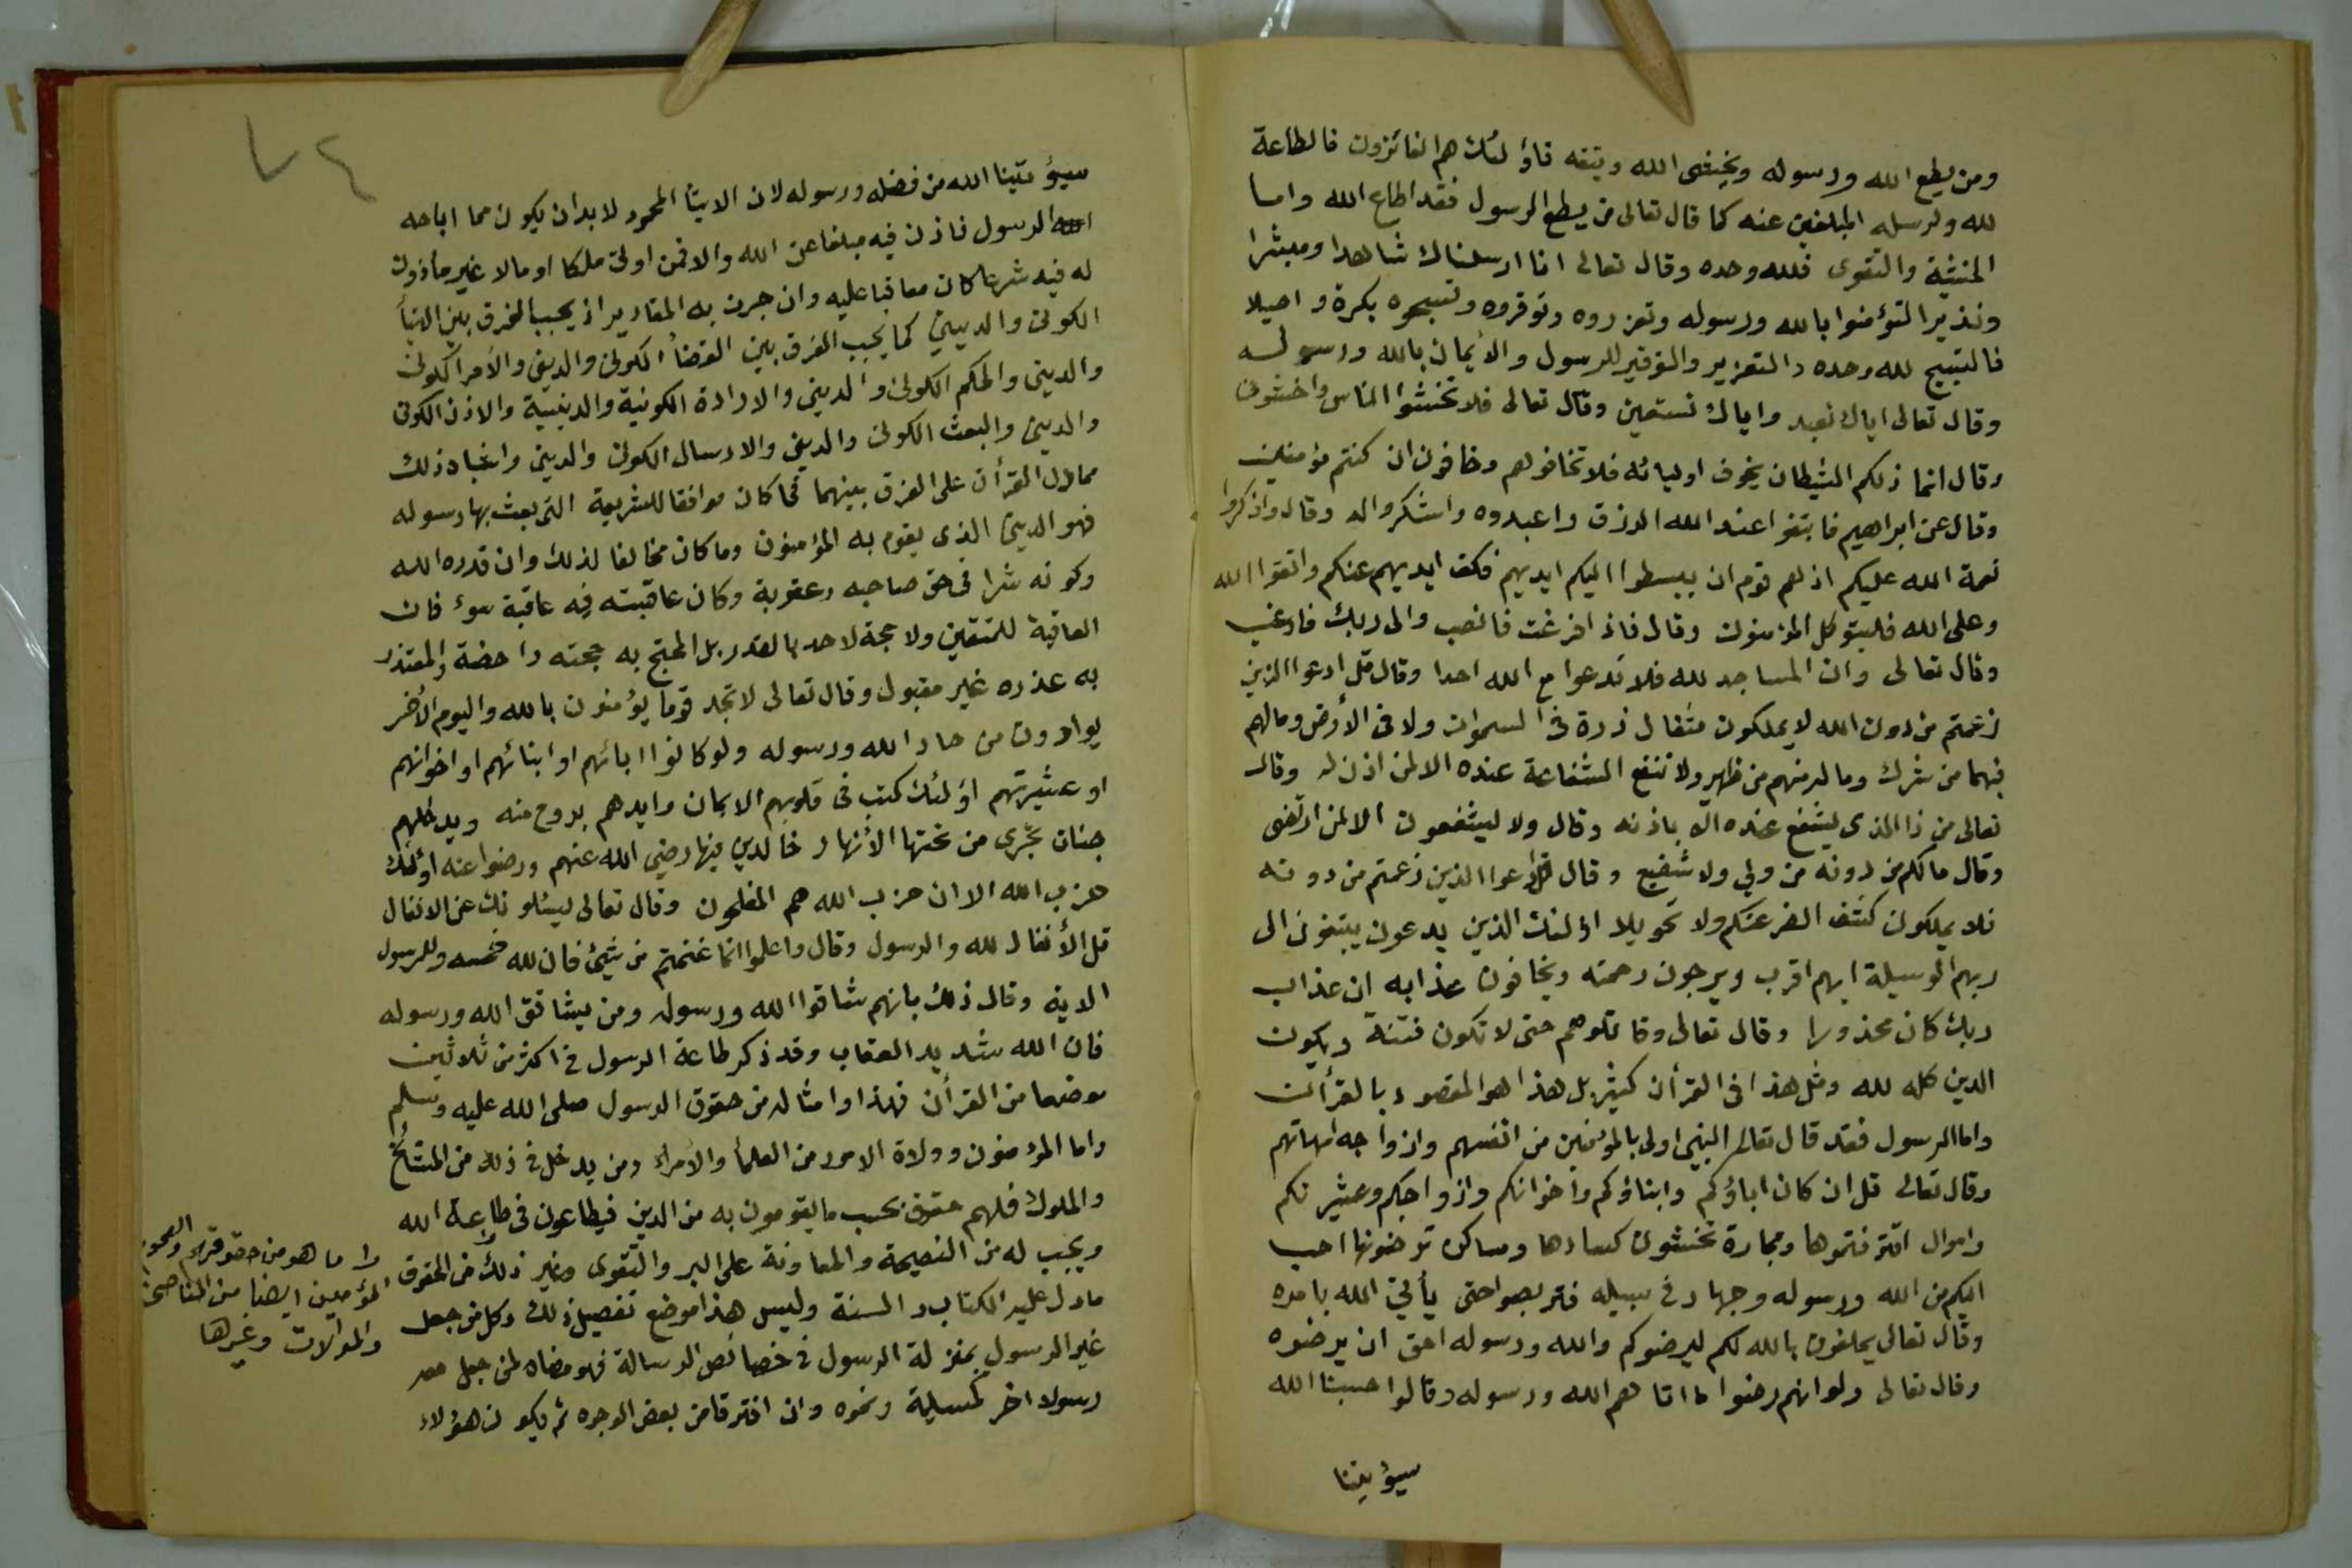 ومن يطع الله ورسوله ويخشى الله ويتقه فاؤلئك هم الفائزون فالطاعة
لله ولرسله المبلغين عنه كما قال تعالى من يطع الرسول فقد اطاع الله واما
الخشية والتقوى فلله وحده وقال تعالى انا ارسلناك شاهدا ومبشرا
ونذيرا لتؤمنوا بالله ورسوله وتعزروه وتوقروه وتسبحوه بكرة واصيلا
فالتسبيح لله وحده والتعزير والتوقير للرسول والأيمان بالله ورسوله
وقال تعالى اياك نعبد واياك نستعين وقال تعالى فلا تخشوا الناس واخشون
وقال انما ذلكم الشيطان يخوف اوليائه فلا تخافوهم وخافون ان كنتم مؤمنين
وقال عن ابراهيم فابتغوا عند الله الرزق واعبدوه واشكروا له وقال واذكروا
نعمة الله عليكم اذ هم قوم ان يبسطوا اليكم ايديهم فكف ايديهم عنكم واتقوا الله
وعلى الله فليتوكل المؤمنون وقال فاذا فرغت فانصب والى ربك فارغب
وقال تعالى وان المساجد لله فلا تدعوا مع الله احدا وقال قل ادعوا الذين
زعمتم من دون الله لا يملكون مثقال ذرة في السموات ولا في الأرض ومالهم
فيهما من شرك وماله منهم من ظهير ولا تنفع الشفاعة عنده الا لمن اذن له وقال
تعالى من ذا الذي يشفع عنده الا باذنه وقال ولا ليشفعون الا لمن ارتضى
وقال مالكم من دونه من ولي ولا شفيع وقال قل ادعوا الذين زعمتم من دونه
فلا يملكون كشف الضر عنكم ولا تحويلا اؤلئك الذين يدعون يبتغون الى
ربهم الوسيلة ايهم اقرب ويرجون رحمته ويخافون عذابه ان عذاب
ربك كان محذورا وقال تعالى وقاتلوهم حتى لا تكون فتنة ويكون
الدين كله لله ومثل هذا في القرأن كثير بل هذا هو المقصود بالقرأن
واما الرسول فقد قال تعالى النبي اولى بالمؤمنين من انفسهم وازواجه امهاتهم
وقال تعالى قل ان كان اباؤكم وابناؤكم واخوانكم وازواجكم وعشيرتكم
واموال اقترفتموها وتجارة تخشون كسادها ومساكن ترضونها احب
اليكم من الله ورسوله وجهاد في سبيله فتربصوا حتى يأتي الله بامره
وقال تعالى يحلفون بالله لكم ليرضوكم والله ورسوله احق ان يرضوه
وقال تعالى ولو انهم رضوا ما اتاهم الله ورسوله وقالوا حسبنا الله
سيؤتينا
٧٤
سيؤتينا الله من فضله ورسوله لان الايتأ المحمود لابد ان يكون مما اباحه
الله الرسول فاذن فيه مبلغا عن الله والا فمن اوتي ملكا او مالا غير مأذون
له فيه شرعا كان معاقبا عليه وان جرت به المقادير اذ يجب الفرق بين الايتأ
الكوني والديني كما يجب الفرق بين القضأ الكوني والديني والأمر الكوني
والديني والحكم الكوني والديني والارادة الكونية والدينية والاذن الكوني
والديني والبعث الكوني والديني والارسال الكوني والديني واشباه ذلك
مما دل القرأن على الفرق بينهما فما كان موافقا للشريعة التي بعث بها رسوله
فهو الديني الذي يقوم به المؤمنون وما كان مخالفا لذلك وان قدره الله
وكونه شرا في حق صاحبه وعقوبة وكان عاقبته فيه عاقبة سوء فان
العاقبة للمتقين ولا حجة لاحد بالقدر بل المحتج به حجته داحضة والمعتذر
به عذره غير مقبول وقال تعالى لا تجد قوما يؤمنون بالله واليوم الأخر
يوادون من حاد الله ورسوله ولو كانوا ابائهم او ابنائهم او اخوانهم
او عشيرتهم اؤلئك كتب في قلوبهم الايمان وايدهم بروح منه ويدخلهم
جنات تجري من تحتها الأنهار خالدين فيها رضي الله عنهم ورضوا عنه اؤلئك
حزب الله الا ان حزب الله هم المفلحون وقال تعالى ليسئلونك عن الانفال
قل الأنفال لله والرسول وقال واعلموا انما غنمتم من شيئ فان لله خمسه وللرسول
الاية وقال ذلك بانهم شاقوا الله ورسوله ومن يشاقق الله ورسوله
فان الله شديد العقاب وقد ذكر طاعة الرسول في اكثر من ثلاثين
موضعا من القرأن فهذا وامثاله من حقوق الرسول صلى الله عليه وسلم
واما المؤمنون وولاة الامور من العلمأ والأمراء ومن يدخل في ذلك من المشائخ
والملوك فلهم حقوق بحسب ما يقومون به من الدين فيطاعون في طاعة الله
ويجب له من النصيحة والمعاونة على البر والتقوى وغير ذلك من الحقوق
ما دل عليه الكتاب والسنة وليس هذا موضع تفصيل ذلك وكل من جعل
غير الرسول بمنزلة الرسول في خصائص الرسالة فهو مضاه لمن جعل معه
رسولا اخر كمسيلمة ونحوه وان افترقا من بعض الوجوه ثم يكون هؤلاء
واما هو من حقوقهم والعموم
المؤمنين ايضا من المناصحة
والموالات وغيرها